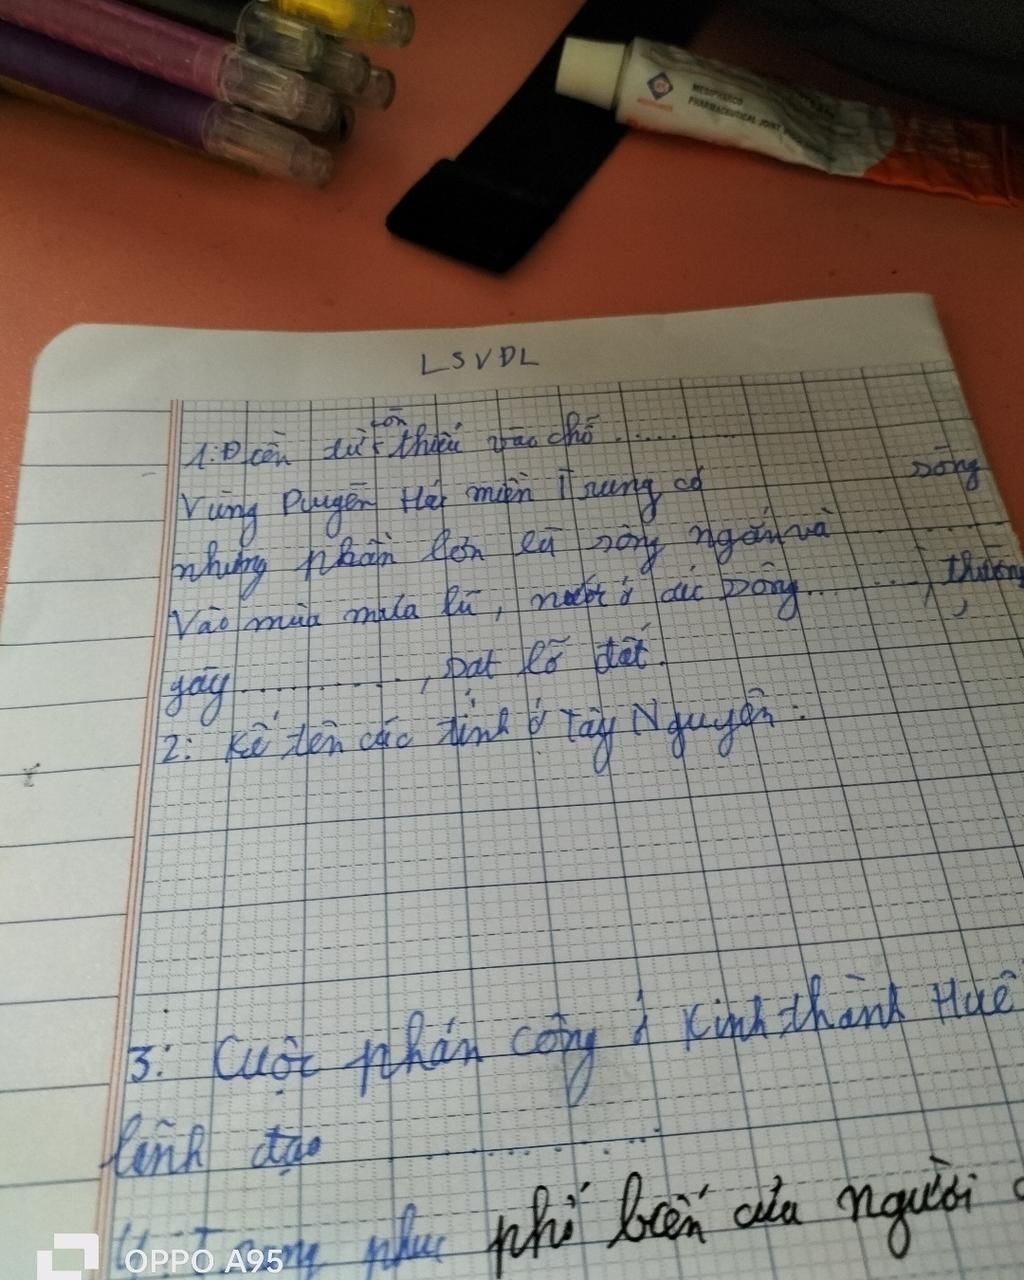 MEDIPHARCO
PHARMACEUTICAL JOINT
LSVDL
1: Điền từ còn thiếu vào chỗ ......
Vùng Duyên Hải miền Trung có sông
nhưng phần lớn là sông ngắn và ......
Vào mùa mưa lũ, nước ở các sông ......, thường
gây .........., sạt lở đất.
2: Kể tên các tỉnh ở Tây Nguyên :
3: Cuộc phản công ở Kinh thành Huế
lãnh đạo ..........
4: Trang phục phổ biến của người
OPPO A95